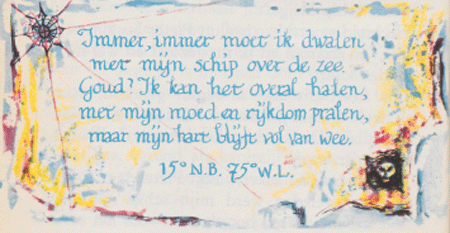 Immer, immer moet ik dwalen
met mijn schip over de zee.
Goud? Ik kan het overal halen,
met mijn moed en rijkdom pralen,
maar mijn hart blijft vol van wee.
15° N.B. 75° W.L.